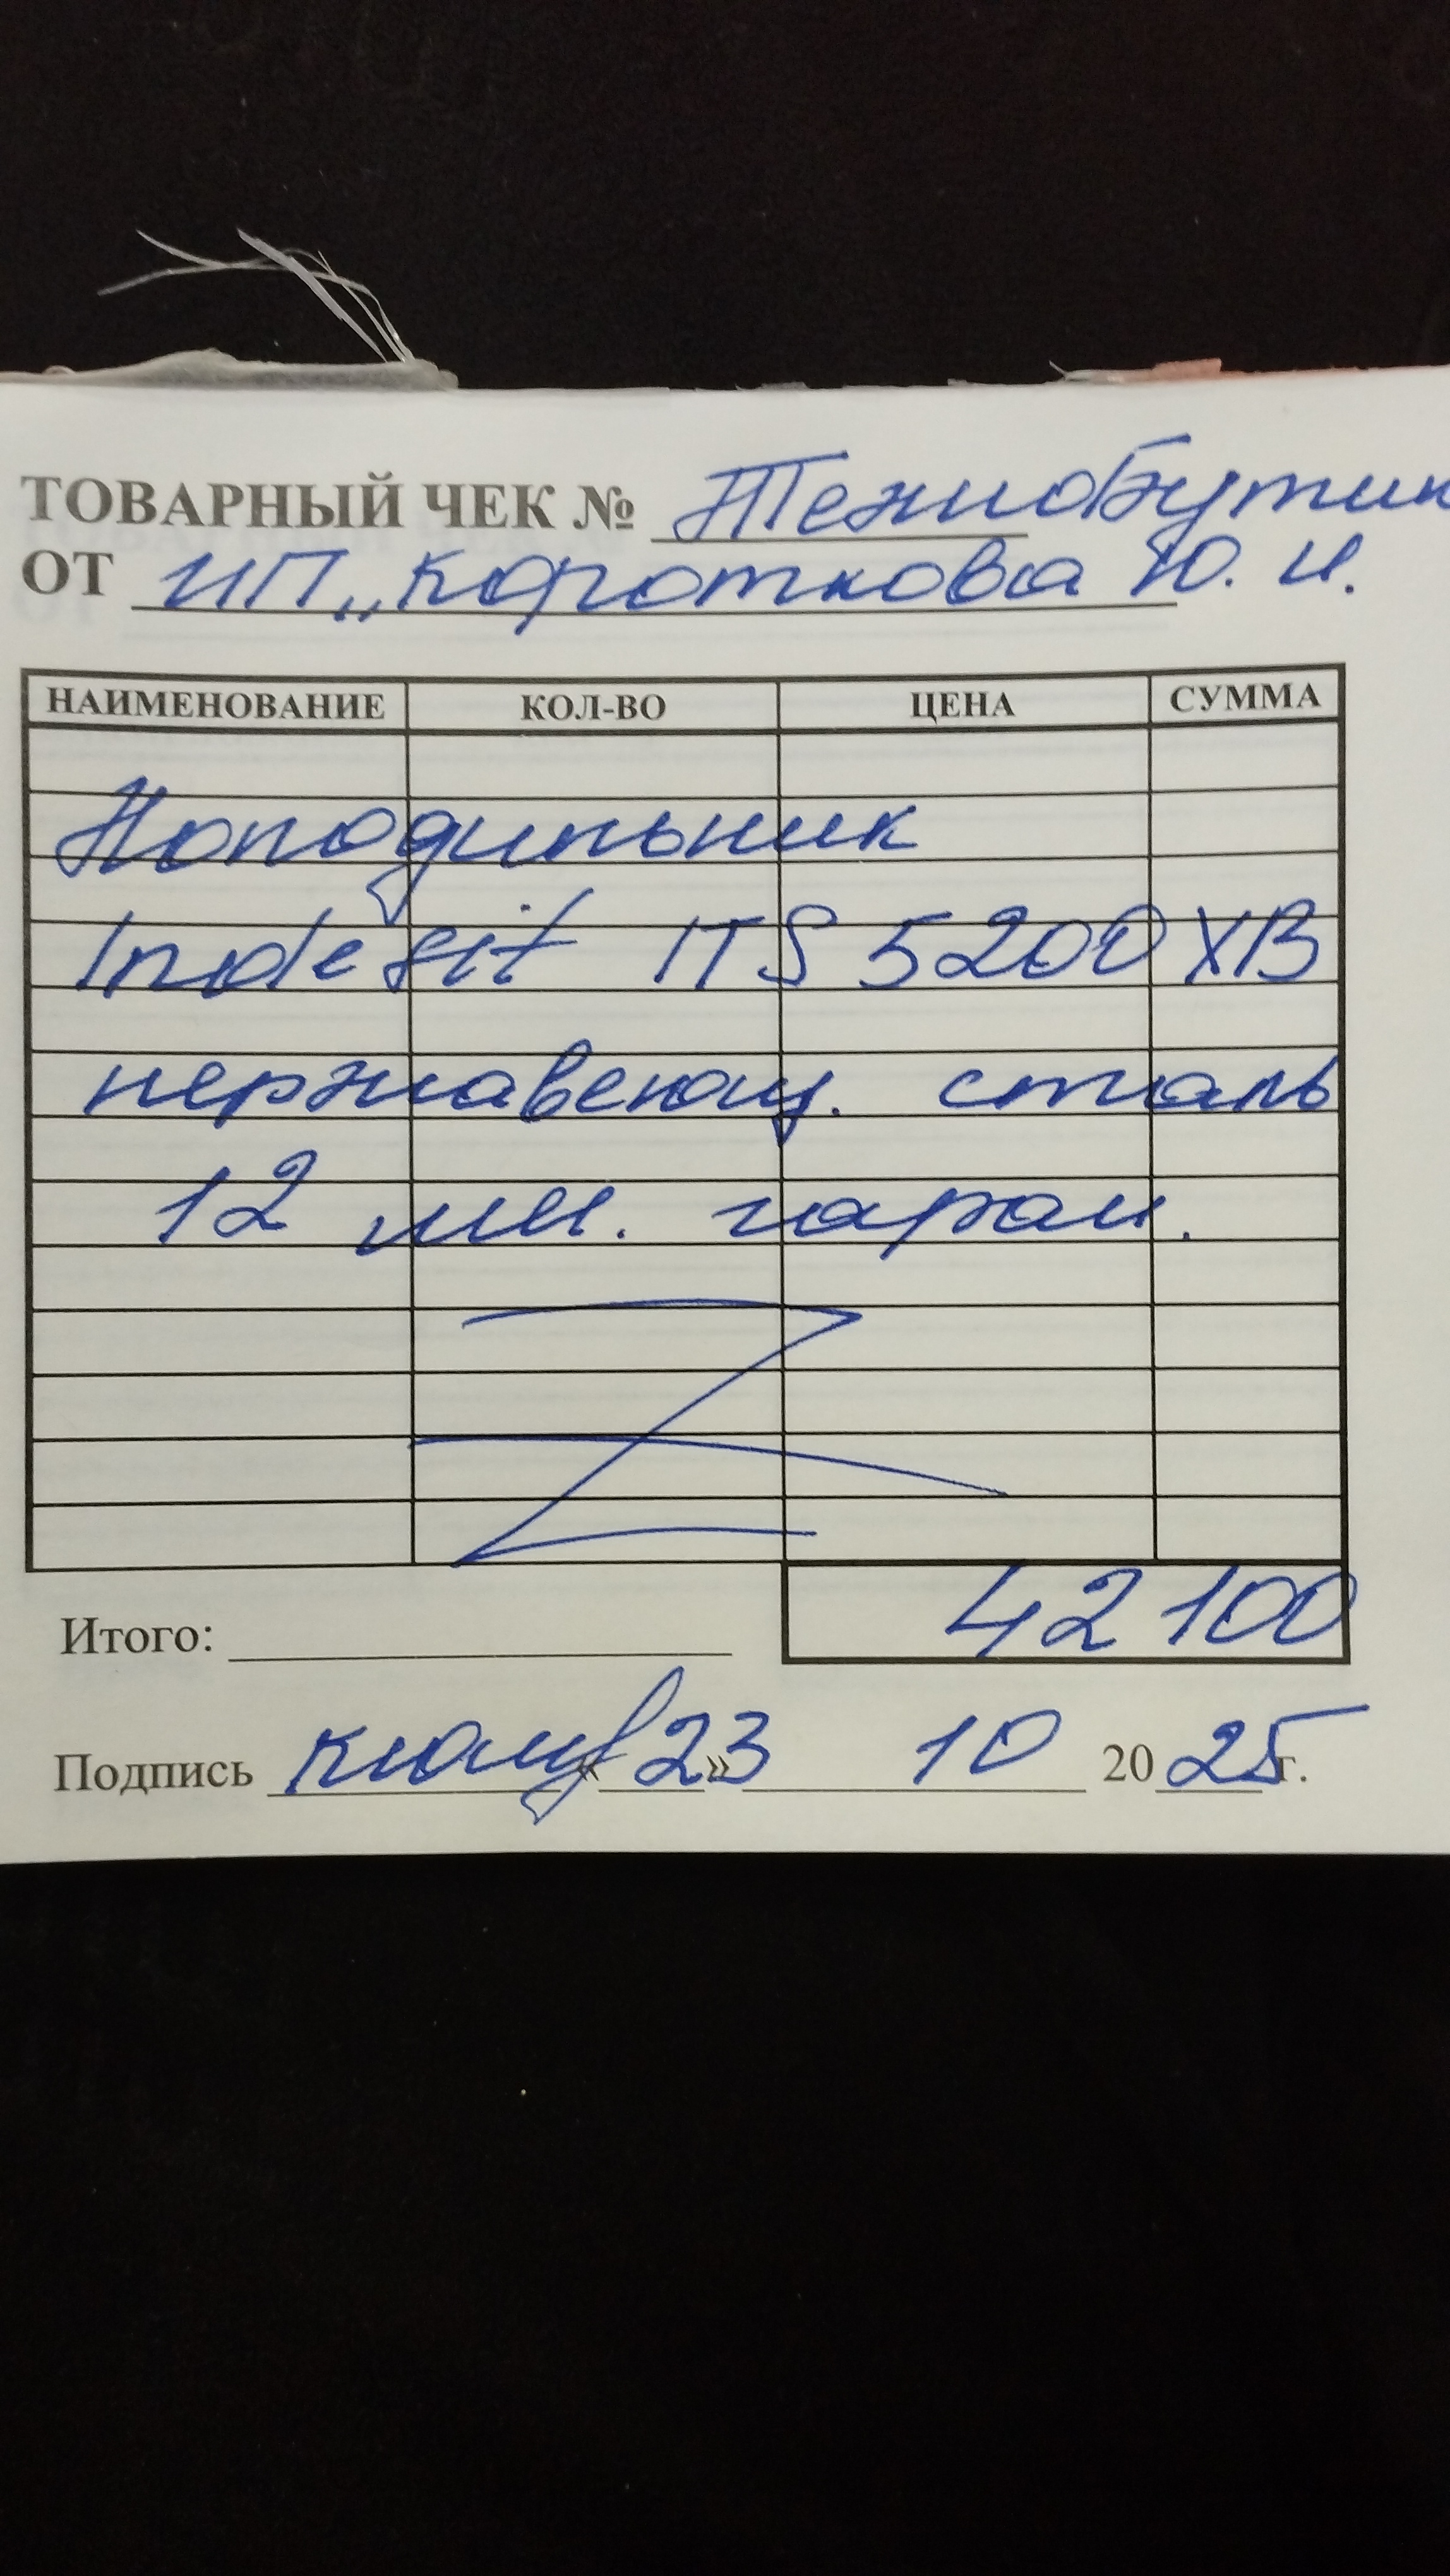 ТОВАРНЫЙ ЧЕК № ТехноБутик
ОТ ИП „Короткова Ю. И.
НАИМЕНОВАНИЕ КОЛ-ВО ЦЕНА СУММА
Холодильник
Indesit ITS 5200 XB
нержавеющ. сталь
12 мес. гаран.
42 100
Итого:
Подпись « 23 » 10 20 25 г.